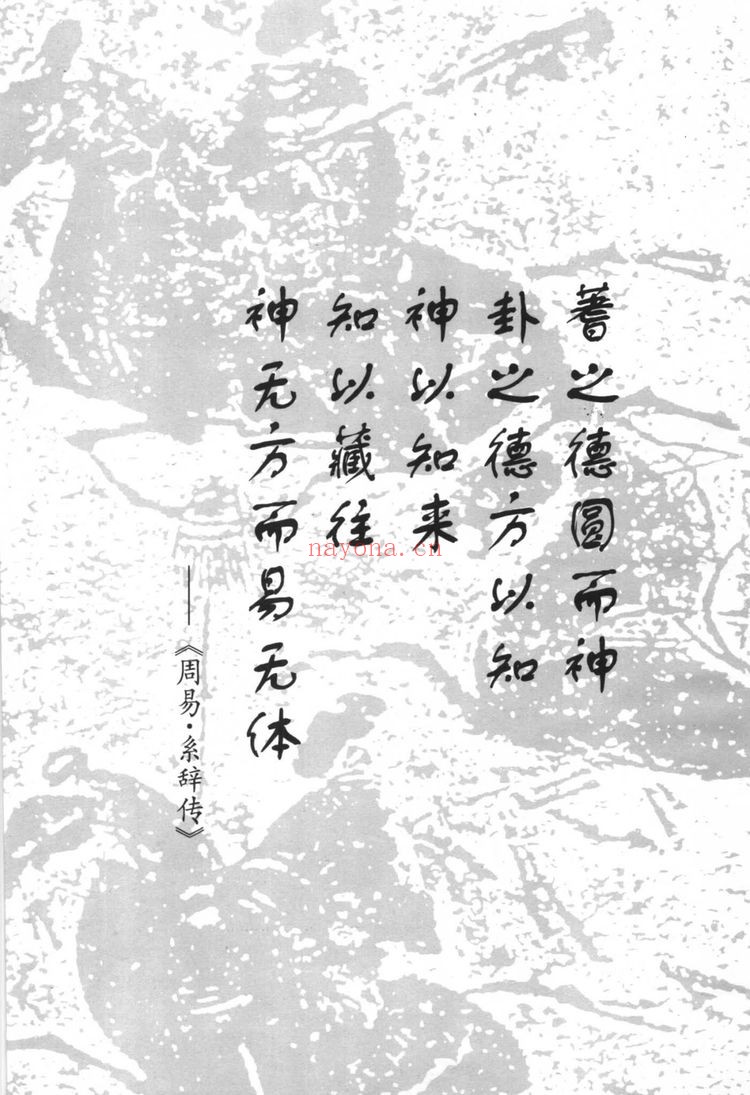 蓍之德圆而神
卦之德方以知
神以知来
知以藏往
神无方而易无体
——《周易·系辞传》
nayona.cn